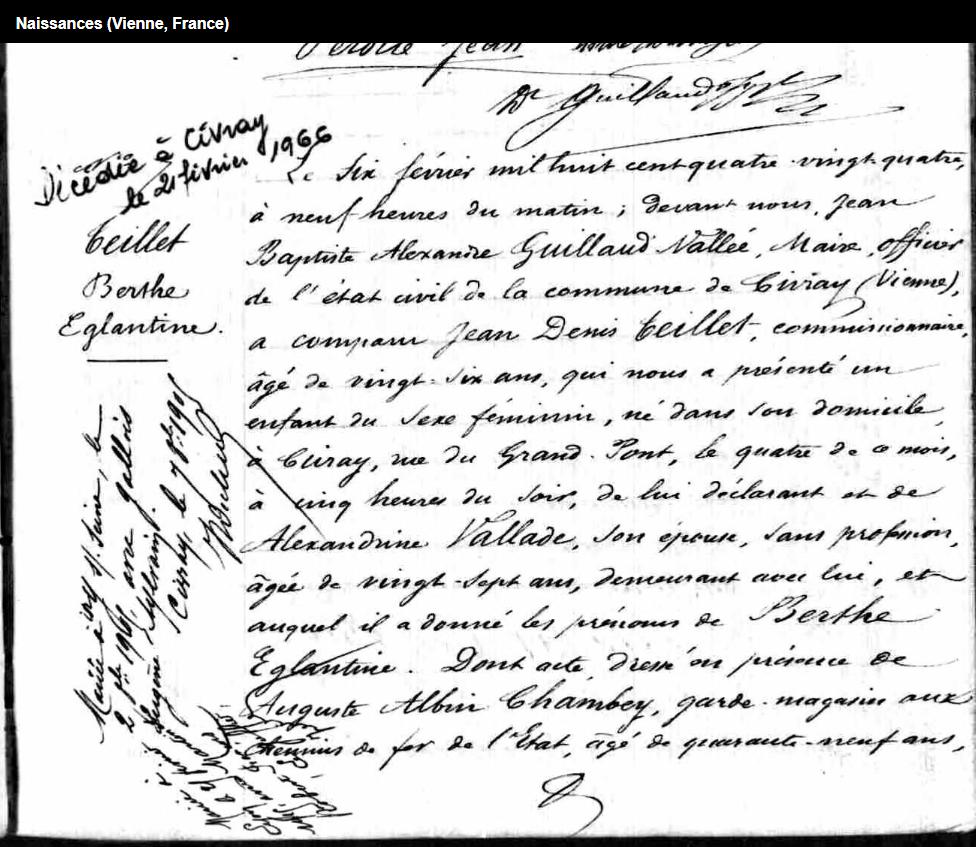 Naissances (Vienne, France)
Jean
Dr Guillaud
Décédée à Civray
le 21 février 1966
Teillet
Berthe
Eglantine.
Le six février mil huit cent quatre-vingt-quatre,
à neuf heures du matin ; devant nous, Jean
Baptiste Alexandre Guillaud Vallée, Maire, officier
de l'état civil de la commune de Civray (Vienne),
a comparu Jean Denis Teillet, commissionnaire,
âgé de vingt-six ans, qui nous a présenté un
enfant du sexe féminin, né dans son domicile
à Civray, rue du Grand-Pont, le quatre de ce mois,
à cinq heures du soir, de lui déclarant et de
Alexandrine Vallade, son épouse, sans profession,
âgée de vingt-sept ans, demeurant avec lui, et
auquel il a donné les prénoms de Berthe
Eglantine. Dont acte, dressé en présence de
Auguste Albin Chambey, garde-magasin aux
chemins de fer de l'Etat, âgé de quarante-neuf ans,
Mariée à Ivry s/ Seine, le
2 1905 avec Gallois
Eugène Sylvain.
Civray, le